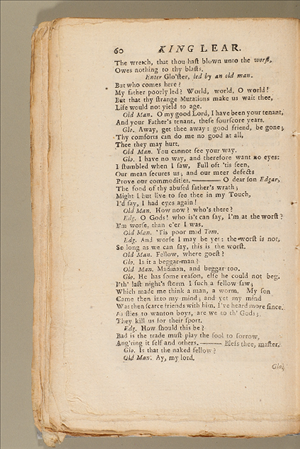 60 KING LEAR.
The wretch, that thou hast blown unto the worst,
Owes nothing to thy blasts.
Enter Glo'ster, led by an old man.
But who comes here?
My father poorly led? World, world, O world!
But that thy strange Mutations make us wait thee,
Life would not yield to age.
Old Man. O my good Lord, I have been your tenant,
And your Father's tenant, these fourscore years.
Glo. Away, get thee away: good friend, be gone;
Thy comforts can do me no good at all,
Thee they may hurt.
Old Man. You cannot see your way.
Glo. I have no way, and therefore want no eyes:
I stumbled when I saw. Full oft 'tis seen,
Our mean secures us; and our meer defects
Prove our commodities. —— O dear son Edgar,
The food of thy abused father's wrath;
Might I but live to see thee in my Touch,
I'd say, I had eyes again!
Old Man. How now? who's there?
Edg. O Gods! who is't can say, I'm at the worst?
I'm worse, than e'er I was.
Old Man. 'Tis poor mad Tom.
Edg. And worse I may be yet: the worst is not,
So long as we can say, this is the worst.
Old Man. Fellow, where goest?
Glo. Is it a beggar-man?
Old Man. Madman, and beggar too.
Glo. He has some reason, else he could not beg.
I'th' last night's storm I such a fellow saw;
Which made me think a man, a worm. My son
Came then into my mind; and yet my mind
Was then scarce friends with him. I've heard more since.
As flies to wanton boys, are we to th' Gods;
They kill us for their sport.
Edg. How should this be?
Bad is the trade must play the fool to sorrow,
Ang'ring it self and others. —— Bless thee, master.
Glo. Is that the naked fellow?
Old Man. Ay, my lord.
Glo.